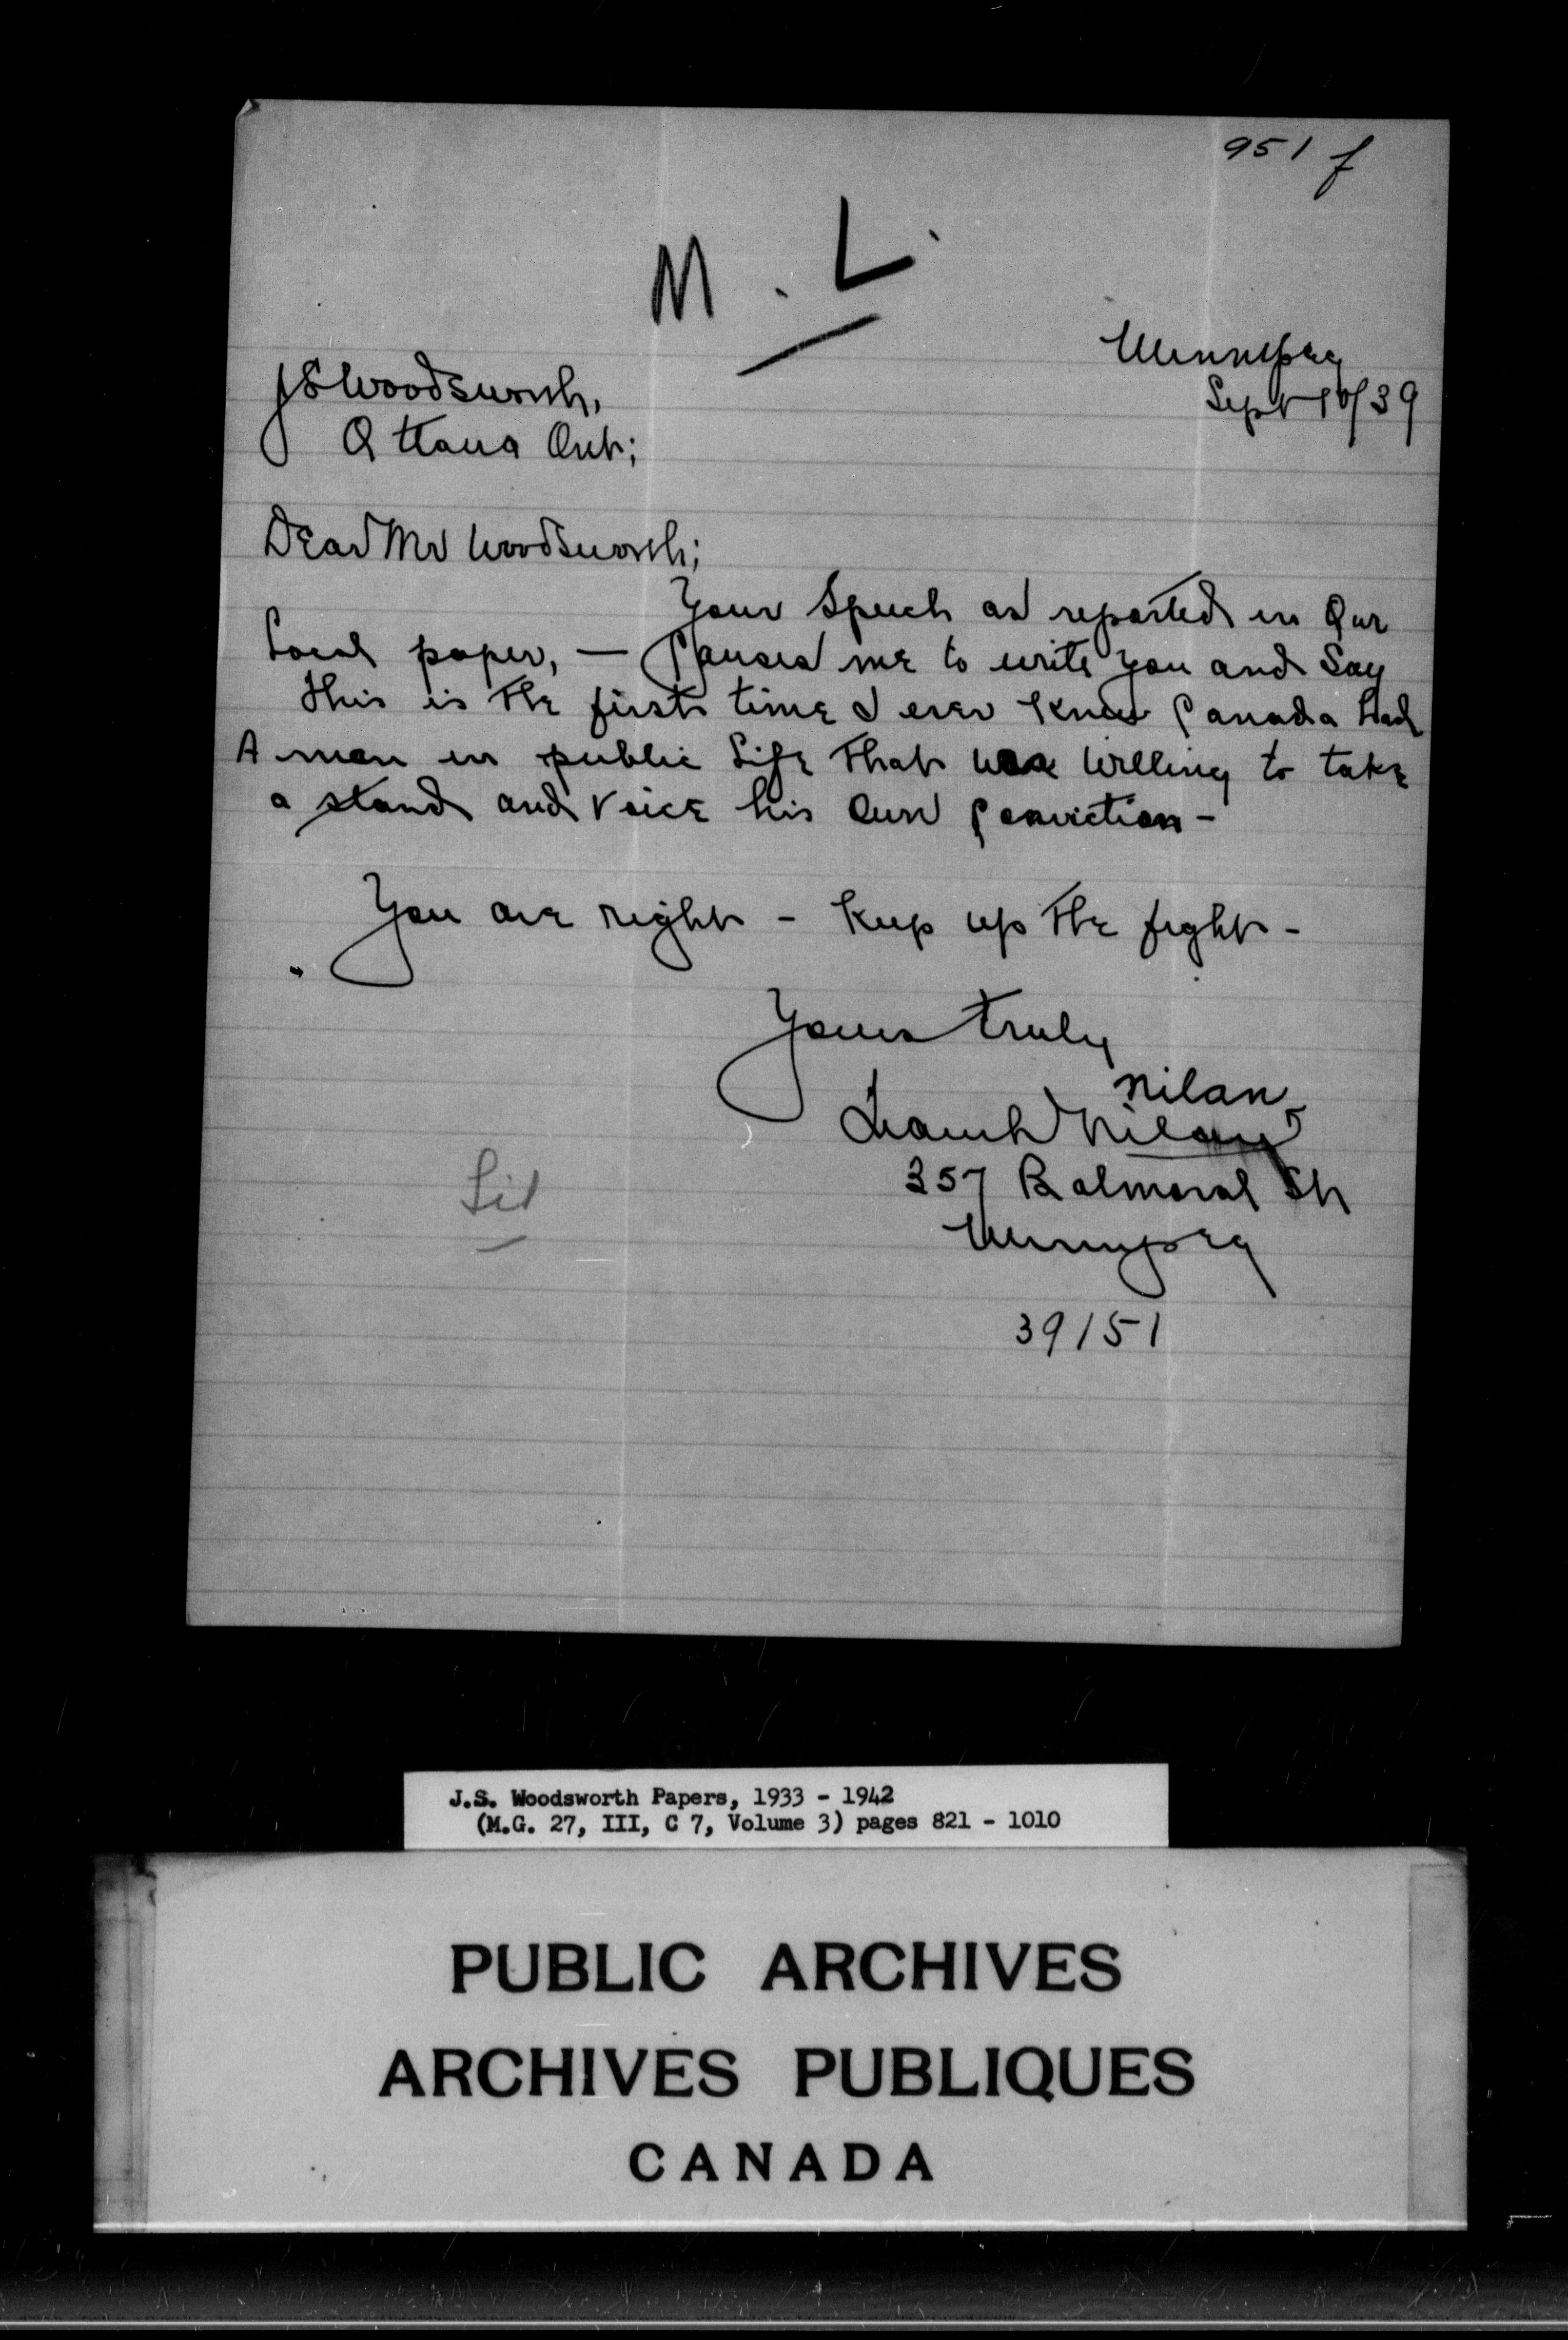 951 f
M. L.
Winnipeg
Sept 10/39
J S Woodsworth,
Ottawa Ont;
Dear Mr Woodsworth;
Your Speech as reported in Our
Local paper, — Caused me to write you and Say
this is the first time I ever knew Canada had
A man in public Life that was Willing to take
a stand and Voice his Own Conviction -
You are right - Keep up the fight -
Yours truly
Nilan
Nilan
357 Balmoral St
Winnipeg
39151
J.S. Woodsworth Papers, 1933 - 1942
(M.G. 27, III, C 7, Volume 3) pages 821 - 1010
PUBLIC ARCHIVES
ARCHIVES PUBLIQUES
CANADA